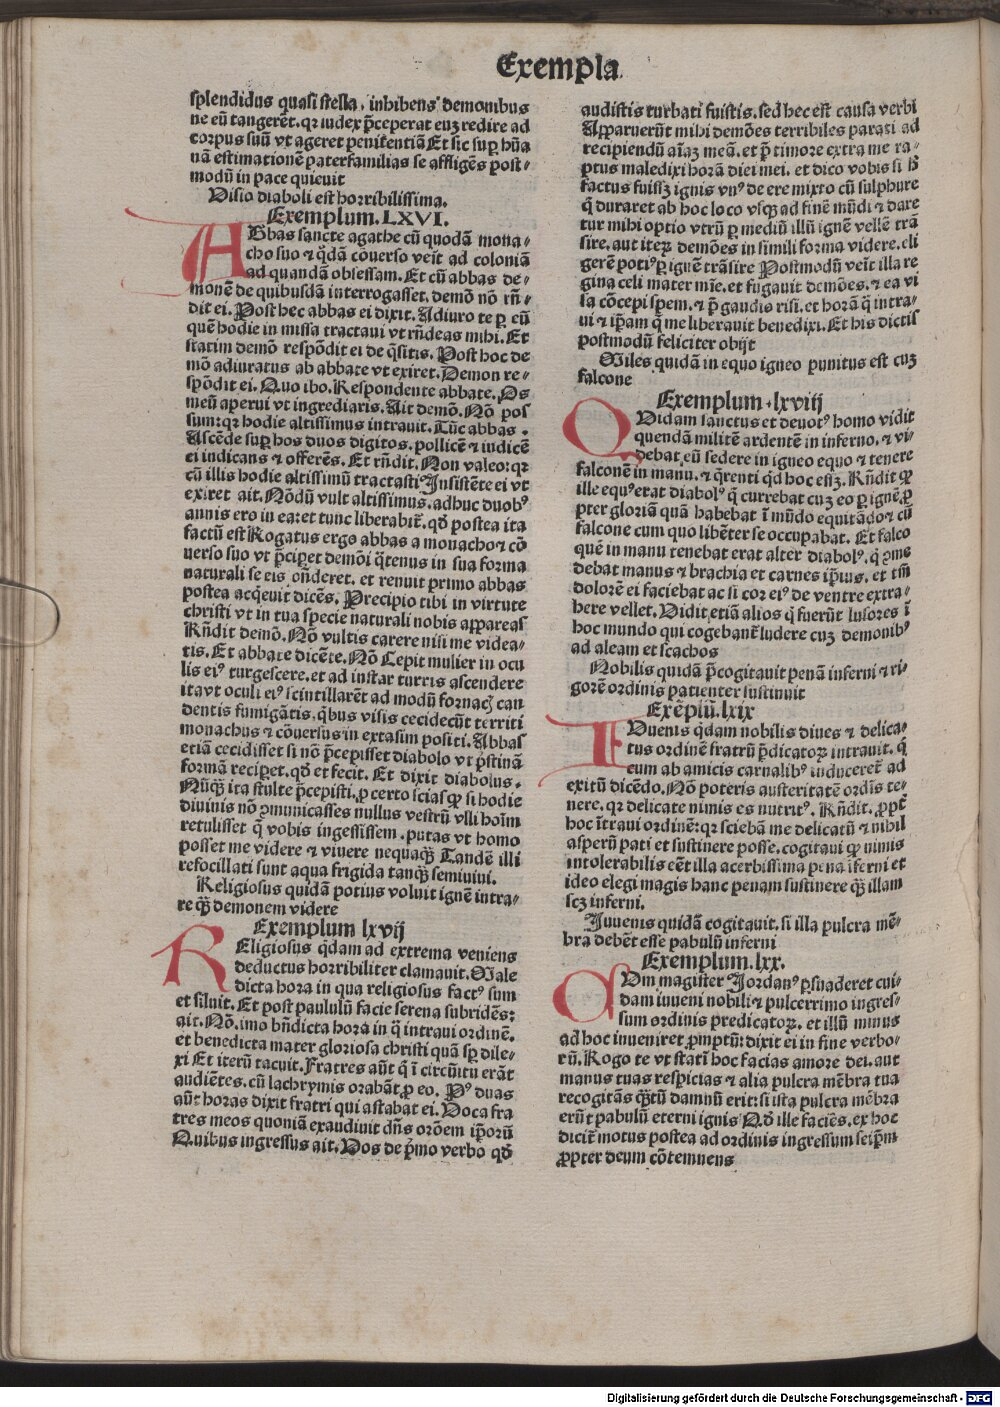 Exempla
splendidus quasi stella, inhibens demonibus
ne eū tangerēt. qꝛ iudex p̄ceperat euȝ redire ad
corpus suū vt ageret penitentiā Et sic suꝑ hūa
nā estimationē paterfamilias se affligēs post⸗
modū in pace quieuit
Visio diaboli est horribilissima.
Exemplum. LXVI.
ABbas sancte agathe cū quodā mona⸗
cho suo ⁊ q̄dā cōuerso veīt ad coloniā
ad quandā obsessam. Et cū abbas de⸗
monē de quibusdā interrogasset. demō nō rn̄⸗
dit ei. Post hec abbas ei dixit. Adiuro te ꝑ eū
quē hodie in missa tractaui vt rn̄deas mihi. Et
statim demō respōdit ei de q̄sitis. Post hoc de
mō adiuratus ab abbate vt exiret. Demon re⸗
spōdit ei. Quo ibo. Respondente abbate. Os
meū aperui vt ingrediaris. Ait demō. Nō pos
sum: qꝛ hodie altissimus intrauit. Tūc abbas.
Ascēde suꝑ hos duos digitos. pollicē ⁊ iudicē
ei indicans ⁊ offerēs. Et rn̄dit. Non valeo: qꝛ
cū illis hodie altissimū tractasti Insistēte ei vt
exiret ait. Nōdū vult altissimus. adhuc duobꝰ
annis ero in ea: et tunc liberabit̄. qd̄ postea ita
factū est Rogatus ergo abbas a monacho ⁊ cō
uerso suo vt p̄ciꝑet demōi q̄tenus in sua forma
naturali se eis on̄deret. et renuit primo abbas
postea acq̄euit dicēs. Precipio tibi in virtute
christi vt in tua specie naturali nobis appareas
Rn̄dit demō. Nō vultis carere nisi me videa⸗
tis. Et abbate dicēte. Nō Cepit mulier in ocu
lis eiꝰ turgescere. et ad instar turris ascendere
ita vt oculi eiꝰ scintillarēt ad modū fornacꝭ can
dentis fumigātis. q̄bus visis cecidecūt territi
monachus ⁊ cōuersus in extasim positi. Abbas
etiā cecidisset si nō p̄cepisset diabolo vt p̄stinā
formā reciꝑet. qd̄ et fecit. Et dixit diabolus.
Nūqꝫ ita stulte p̄cepisti. ꝓ certo scias ꝙ si hodie
diuinis nō ꝯmunicasses nullus vestrū vlli hoīm
retulisset q̄ vobis ingessissem. putas vt homo
posset me videre ⁊ viuere nequaqꝫ Tandē illi
refocillati sunt aqua frigida tanqꝫ semiuiui.
Religiosus quidā potius voluit ignē intra⸗
re qꝫ demonem videre
Exemplum lxvij
REligiosus q̄dam ad extrema veniens
deductus horribiliter clamauit. Male
dicta hora in qua religiosus factꝰ sum
et siluit. Et post paululū facie serena subridēs:
ait. Nō. imo bn̄dicta hora in q̄ intraui ordinē.
et benedicta mater gloriosa christi quā sꝑ dile⸗
xi Et iterū tacuit. Fratres aūt q̄ ī circūitu erāt
audiētes. cū lachrymis orabāt ꝓ eo. Pꝰ duas
aūt horas dixit fratri qui astabat ei. Voca fra
tres meos quoniā exaudiuit dn̄s orōem ip̄orū
Quibus ingressus ait. Vos de p̄mo verbo qd̄
audistis turbati fuistis. sed hec est causa verbi
Apparuerūt mihi demōes terribiles parati ad
recipiendū aīaȝ meā. et p̄ timore extra me ra⸗
ptus maledixi horā diei mei. et dico vobis si h̄
factus fuissȝ ignis vnꝰ de ere mixto cū sulphure
q̄ duraret ab hoc loco vsqꝫ ad finē mūdi ⁊ dare
tur mihi optio vtrū ꝑ mediū illū ignē vellē trā
sire. aut iteꝝ demōes in simili forma videre. eli
gerē potiꝰ ꝑ ignē trāsire Postmodū veīt illa re
gina celi mater mīe. et fugauit demōes. ⁊ ea vi
sa cōcepi spem. ⁊ p̄ gaudis risi. et horā q̄ intra⸗
ui ⁊ ip̄am q̄ me liberauit benedixi. Et his dictis
postmodū feliciter obijt
Miles quidā in equo igneo punitus est cuȝ
falcone
Exemplum lxviij
QVidam sanctus et deuotꝰ homo vidit
quendā militē ardentē in inferno. ⁊ vi⸗
debat eū sedere in igneo equo ⁊ tenere
falconē in manu. ⁊ q̄renti qd̄ hoc essȝ. Rn̄dit ꝙ
ille equꝰ erat diabolꝰ q̄ currebat cuȝ eo ꝑ ignē. ꝓ
pter gloriā quā habebat ī mūdo equitādo ⁊ cū
falcone cum quo libēter se occupabat. Et falco
quē in manu tenebat erat alter diabolꝰ. q̄ ꝯme
debat manus ⁊ brachia et carnes ip̄ius. et tm̄
dolorē ei faciebat ac si cor eiꝰ de ventre extra⸗
here vellet. Vidit etiā alios q̄ fuerūt lusores ī
hoc mundo qui cogebant̄ ludere cuȝ demonibꝰ
ad aleam et scachos
Nobilis quidā p̄cogitauit penā inferni ⁊ ri⸗
gorē ordinis patienter sustinuit
Exēplū. lxix
IVuenis q̄dam nobilis diues ⁊ delica⸗
tus ordinē fratrū p̄dicatoꝝ intrauit. q̄
cum ab amicis carnalibꝰ induceret̄ ad
exitū dicēdo. Nō poteris austeritatē ordīs te⸗
nere. qꝛ delicate nimis es nutritꝰ. Rn̄dit. ꝓpt̄
hoc ītraui ordinē: qꝛ sciebā me delicatū ⁊ nihil
asperū pati et sustinere posse. cogitaui ꝙ nimis
intolerabilis eēt illa acerbissima pena īferni et
ideo elegi magis hanc penam sustinere qꝫ illam
scȝ inferni.
Iuuenis quidā cogitauit. si illa pulcra mē⸗
bra debēt esse pabulū inferni
Exemplum. lxx.
CVm magister Jordanꝰ ꝑsuaderet cui⸗
dam iuueni nobili ⁊ pulcerrimo ingres⸗
sum ordinis predicatoꝝ. et illū minus
ad hoc inueniret ꝓmptū: dixit ei in fine verbo⸗
rū. Rogo te vt statī hoc facias amore dei. aut
manus tuas respicias ⁊ alia pulcra mēbra tua
recogitās qꝫtū damnū erit: si ista pulcra mēbra
erūt pabulū eterni ignis Qd̄ ille faciēs. ex hoc
dicit̄ motus postea ad ordinis ingressum seip̄m
ꝓpter deum cōtemnens
Digitalisierung gefördert durch die Deutsche Forschungsgemeinschaft - DFG